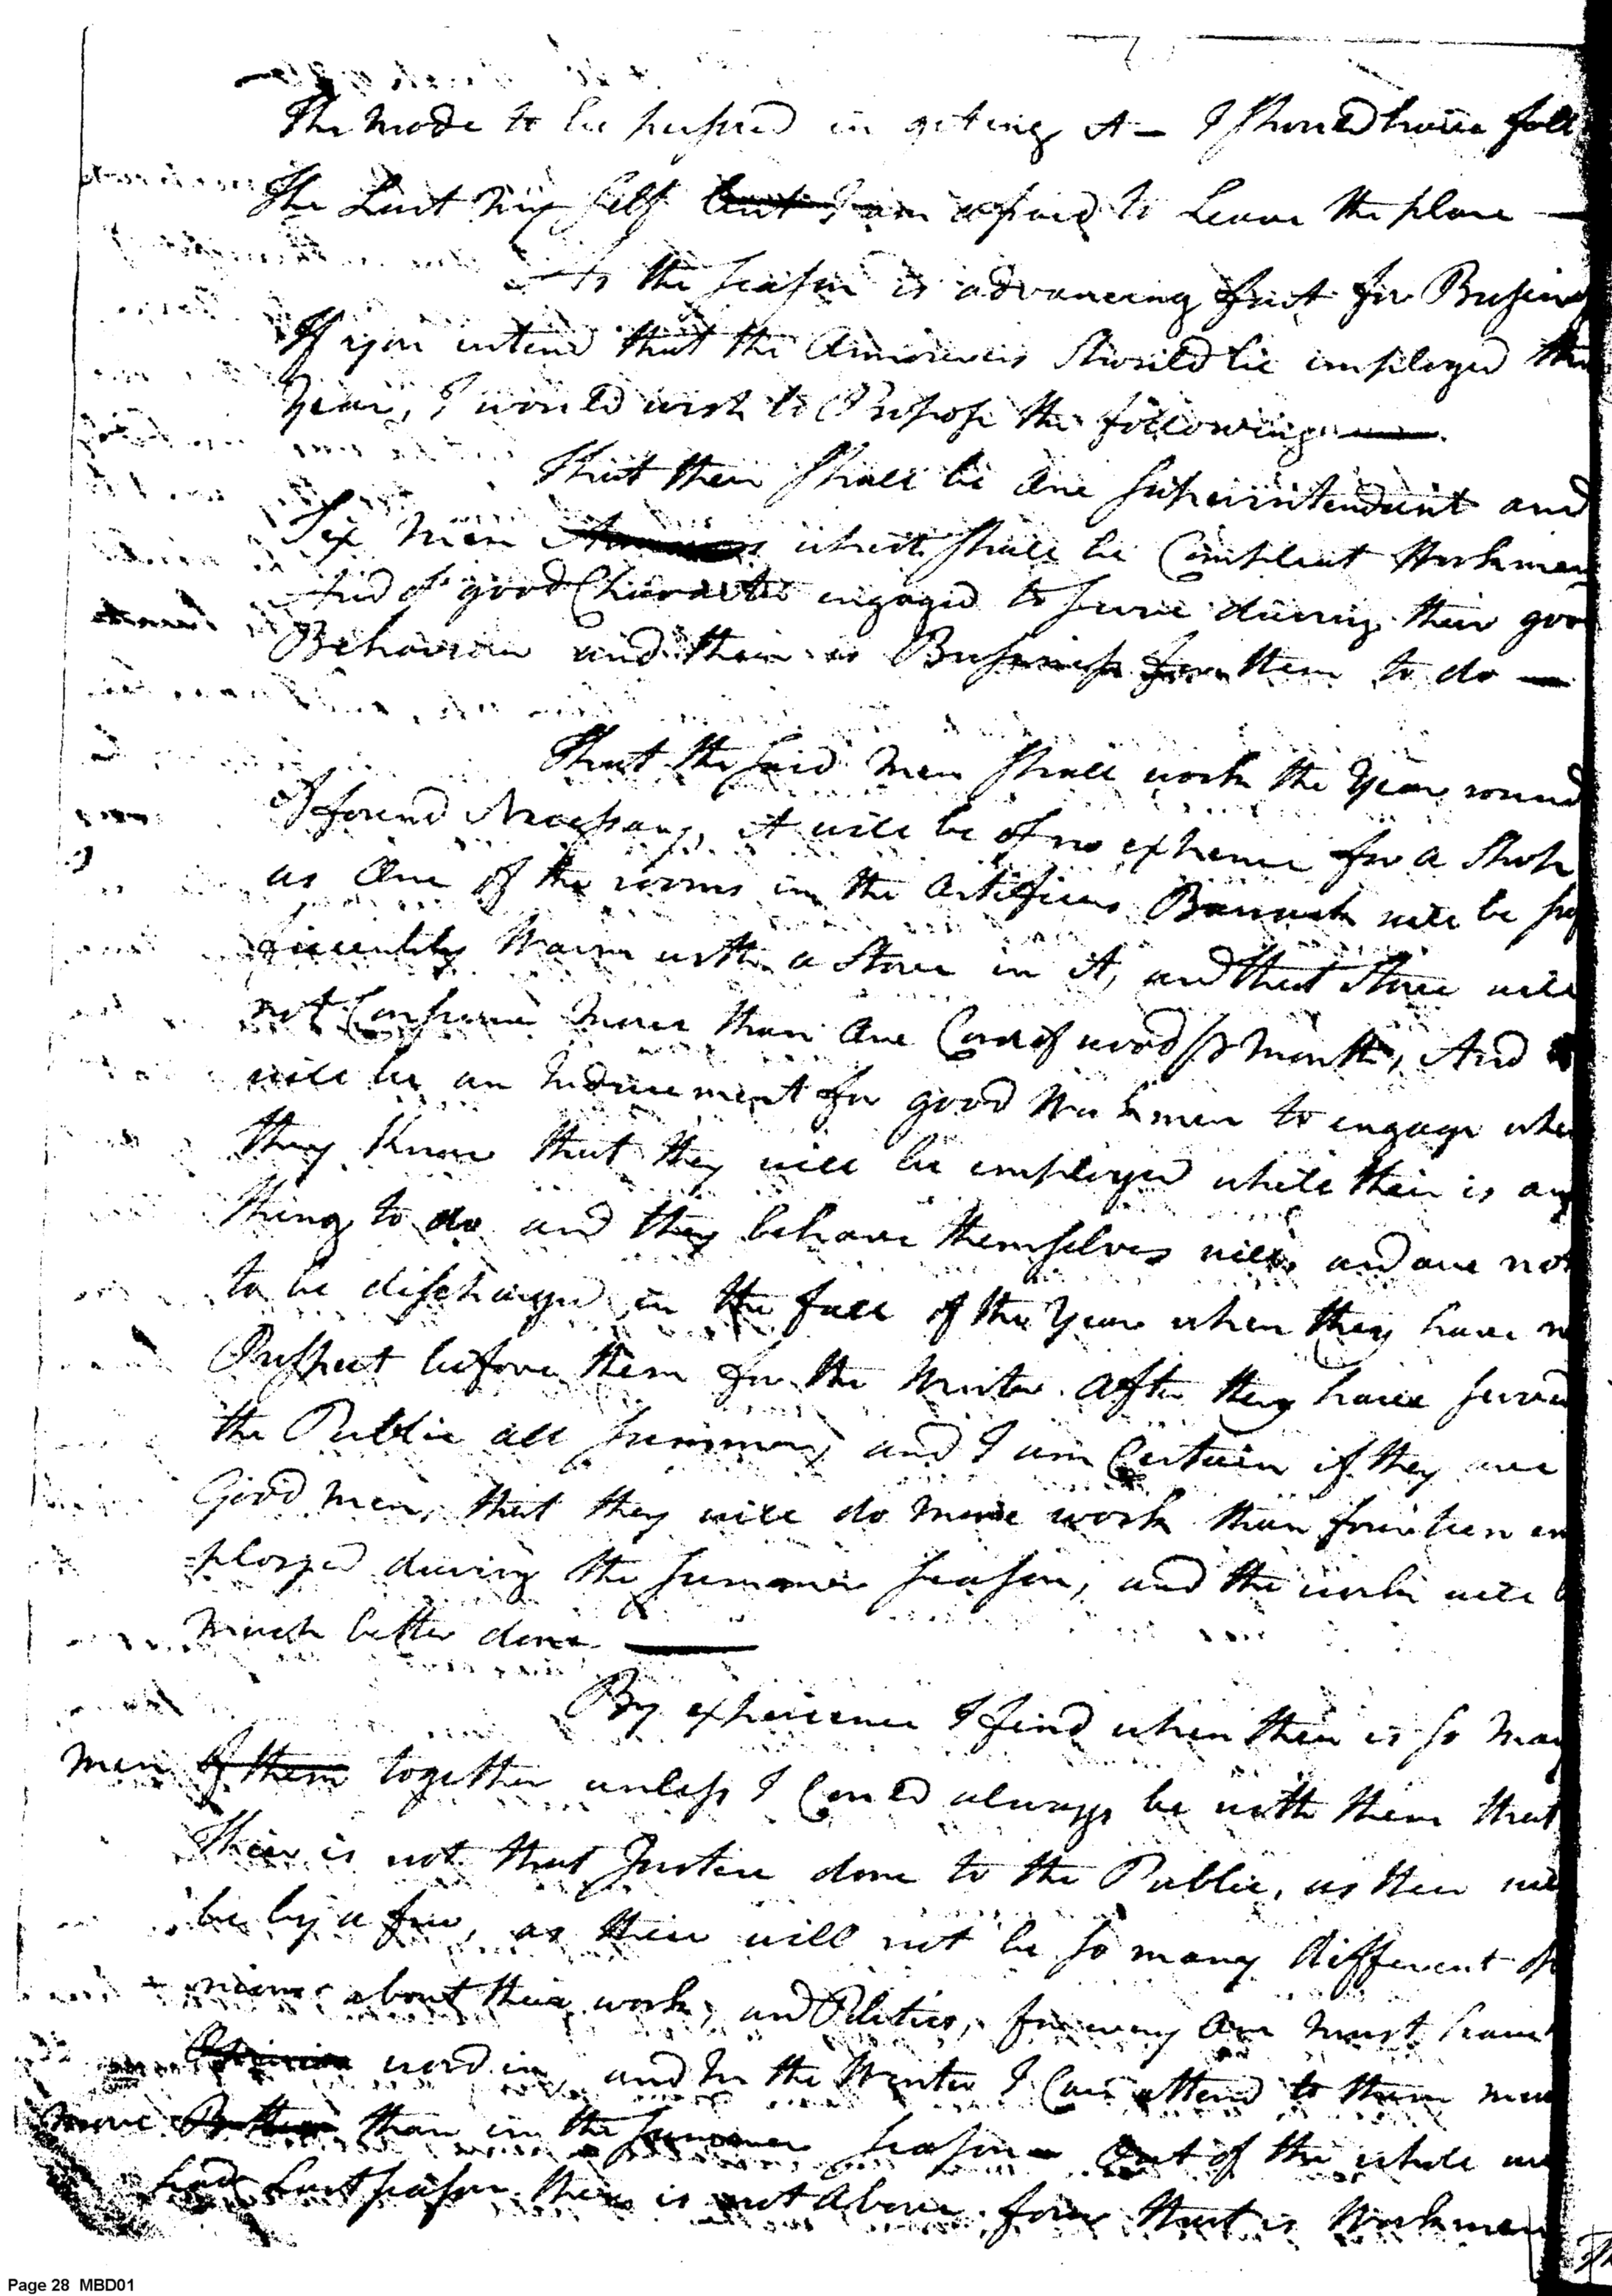 The mode to be pursued in geting it — I should have foll
The Last my self but I am afraid to Leave the place —
As the season is advancing fast for Business
If you intend that the Armourers should be employed this
Year, I would wish to Propose the following —
That their shall be One superintendant and
Six men which shall be Compleat Workmen
And of good Character engaged to serve during their good
Behaviour and their is Business for them to do —
That the said men shall work the Year round
If found Necessary, it will be of no expence for a Shop
as One of the rooms in the Artificers Barrack will be suf
ficiently Warm with a Stove in it, and that Stove will
not Consume more than One Cord of wood pr month, And
will be an Inducement for good Workmen to engage when
they know that they will be employed while their is any
thing to do and they behave themselves well, and are not
to be discharged in the fall of the Year when they have no
Prospect before them for the Winter after they have served
the Public all summer, and I am Certain if they are
Good men, that they will do more work than fourteen em
=ployed during the summer season, and the work will b
much better done —
By experience I find when their is so many
men of them together unless I Could always be with them that
Their is not that Justice done to the Public, as their will
be by a few, as their will not be so many different Opi
nions about their work, and Politics, for every One must have
word in, and In the Winter I Can attend to them much
more than in the summer season — Out of the whole we
had Last season their is not Above four that is Workmen
Page 28 MBD01